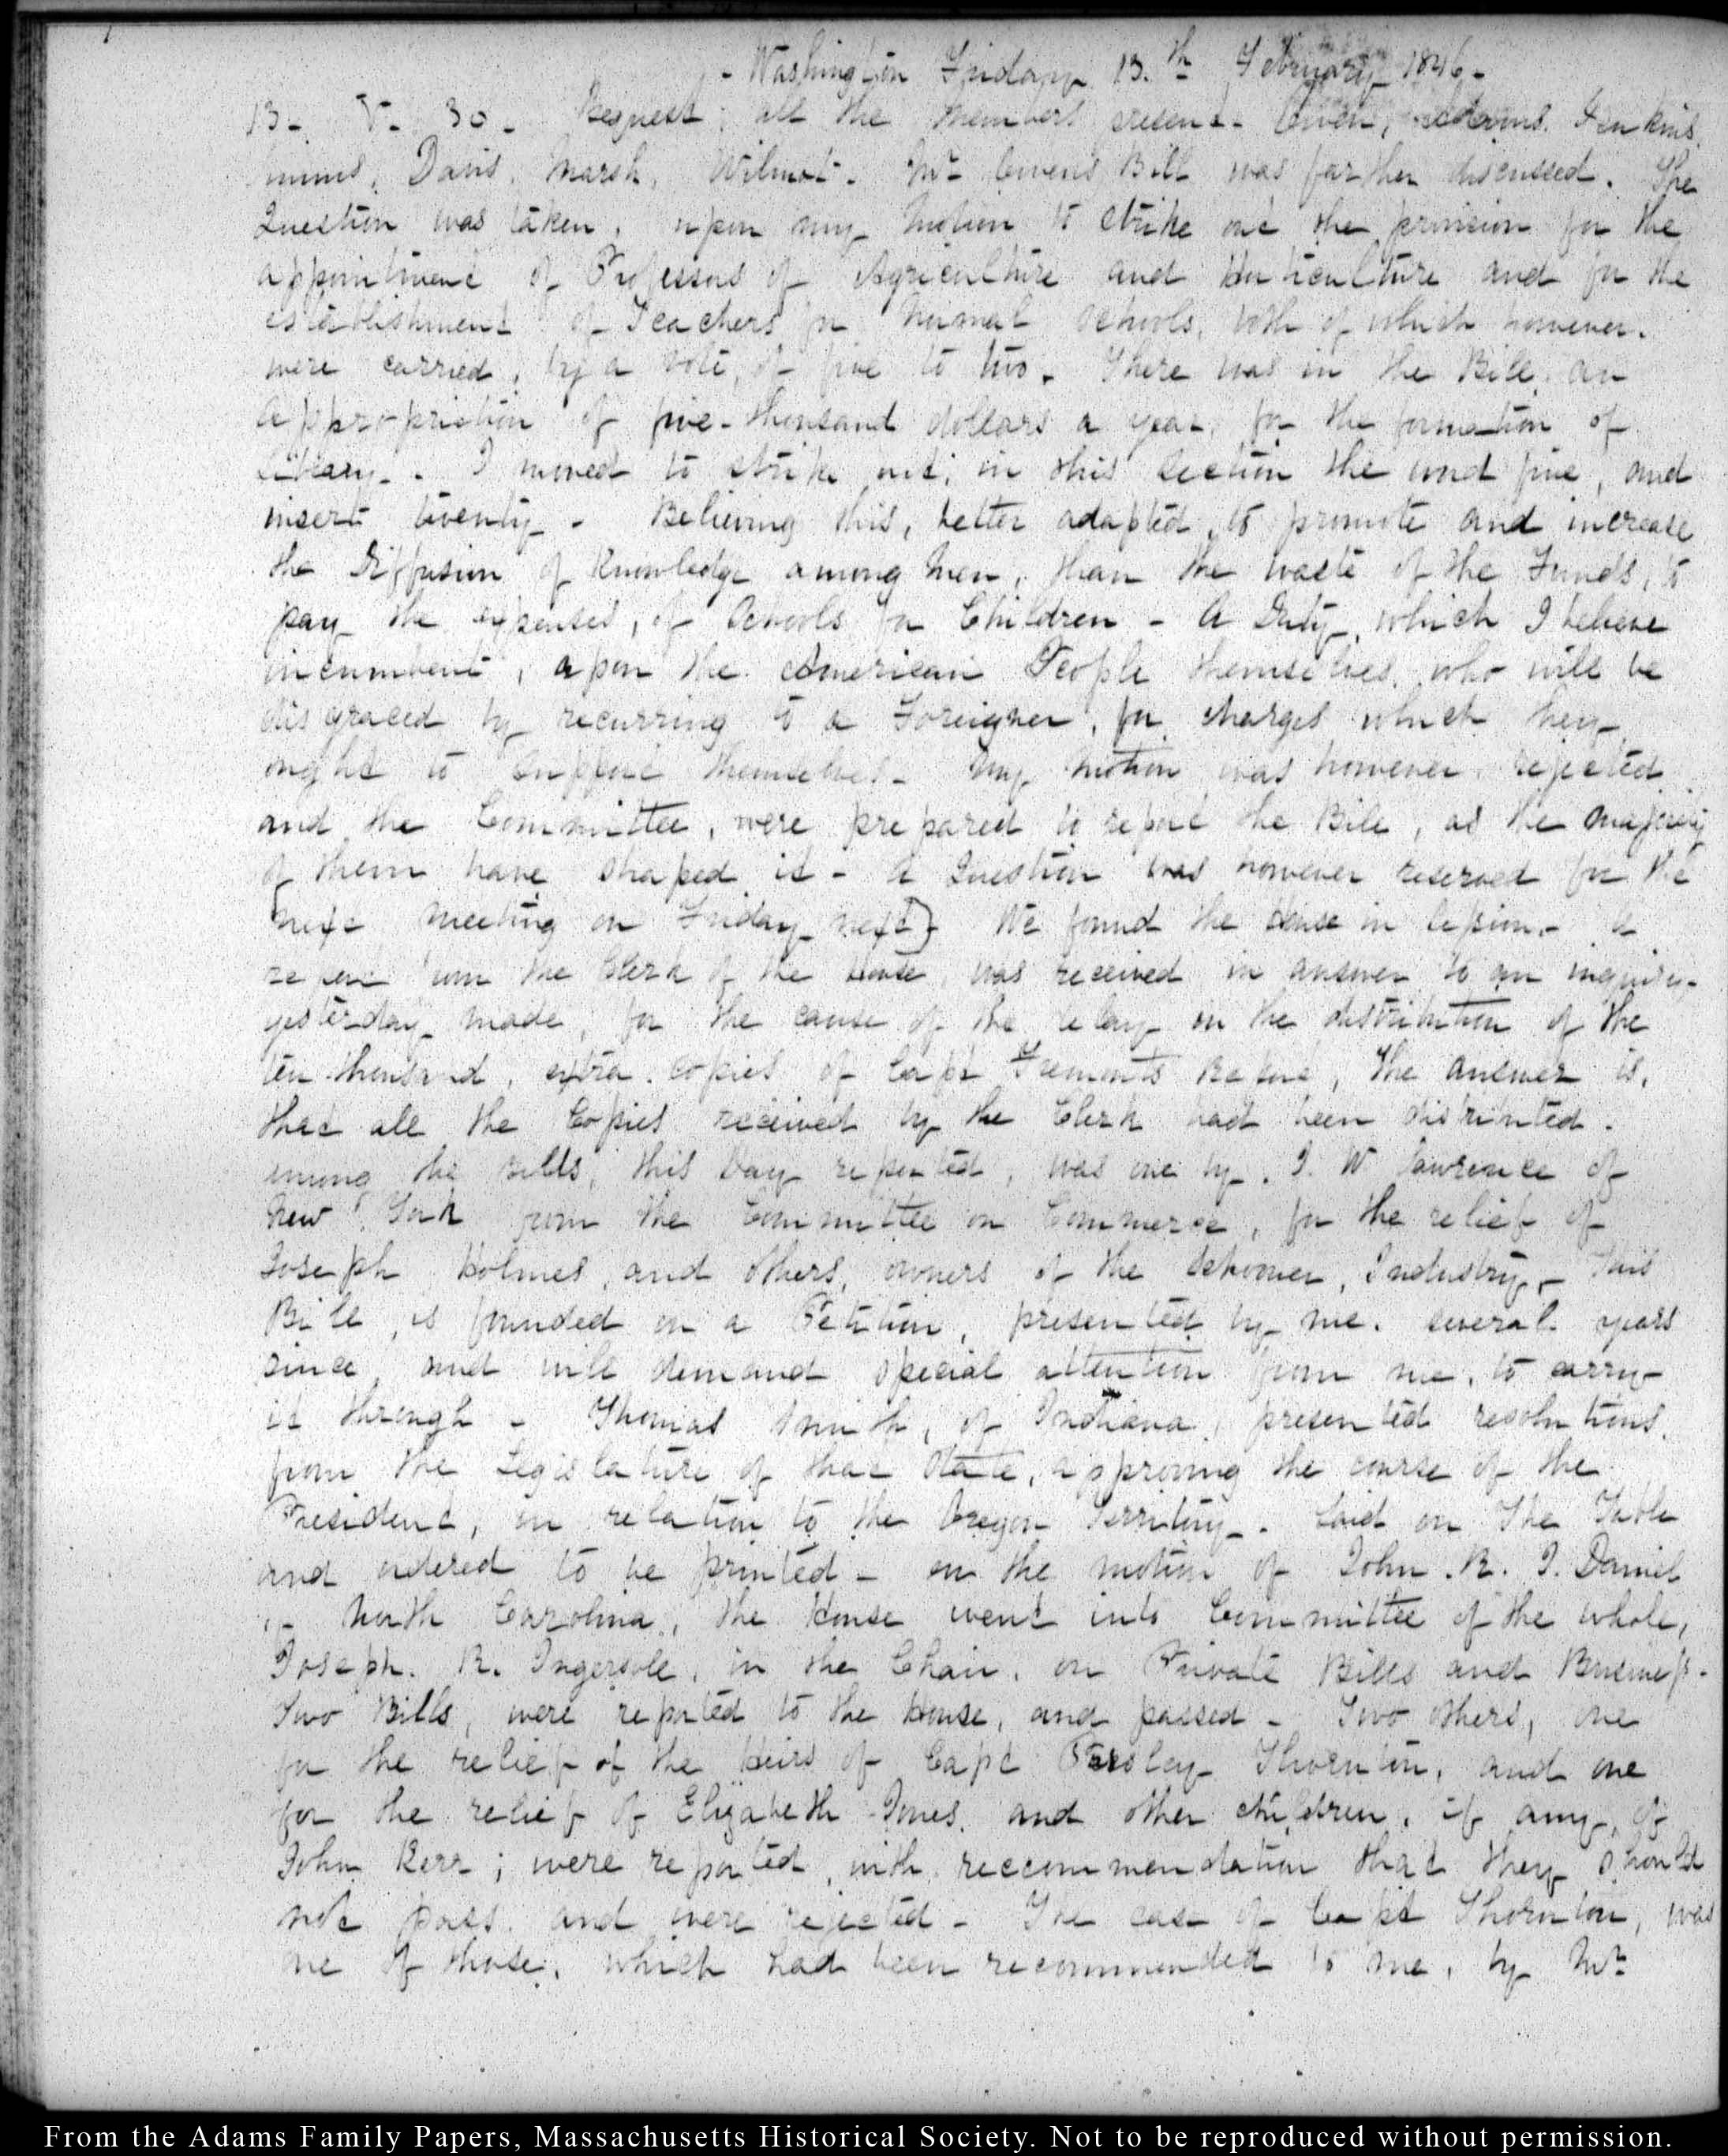 - Washington Friday 13.th February 1846-
13- V- 30- Bequest; all the members present- Owen, Adams. Jenkins.
mins, Davis. Marsh, Wilmot- Mr Owen's Bill was farther discussed. The
Question was taken, upon my motion to strike out the provision for the
appointment of Professors of Agriculture and Horticulture and for the
establishment of Teachers for Normal Schools, both of which however.
were carried, by a vote, of five to two. There was in the Bill, an
appropriation of five-thousand dollars a year, for the formation of
Library-. I moved to strike out; in this Section the word five, and
insert twenty- Believing this, better adapted, to promote and increase
the Diffusion of Knowledge among Men, than the waste of the Funds, to
pay the expenses, of Schools for Children- A Duty, which I believe
incumbent, upon the American People themselves, who will be
disgraced by recurring to a Foreigner, for charges which they
ought to support themselves- My motion was however rejected
and the Committee, were prepared to report the Bill, as the majority
of them have shaped it- A Question was however reserved for the
next meeting on Friday next} We found the House in Session- A
report from the Clerk of the House, was received in answer to an inquiry-
yesterday made, for the cause of the delay in the distribution of the
ten thousand, extra copies of Capt Fremont's Report, The answer is,
that all the Copies received by the Clerk had been distributed.
among the Bills, this Day reported, was one by. J. W Lawrence of
New York from the Committee on Commerce, for the relief of
Joseph Holmes, and others, owners of the Schooner, Industry- This
Bill, is founded on a Petition, presented by me. several years
since and will demand special attention from me, to carry
it through- Thomas Smith, of Indiana, presented resolutions.
from the Legislature of that State, approving the course of the
President, in relation to the Oregon Territory-. Laid on The Table
and ordered to be printed- on the motion of John. R. J. Daniel
of North Carolina, the House went into Committee of the whole,
Joseph. R. Ingersoll, in the Chair, on Private Bills and Business-
Two Bills, were reported to the House, and passed- Two others, one
for the relief of the Heirs of Capt Presley Thornton, and one
for the relief of Elizabeth Jones, and other children, if any, of
John Kerr; were reported, with reccommendation that they should
not pass. and were rejected- The case of Capt Thornton, was
one of those, which had been recommended to me, by Mr
From the Adams Family Papers, Massachusetts Historical Society. Not to be reproduced without permission.